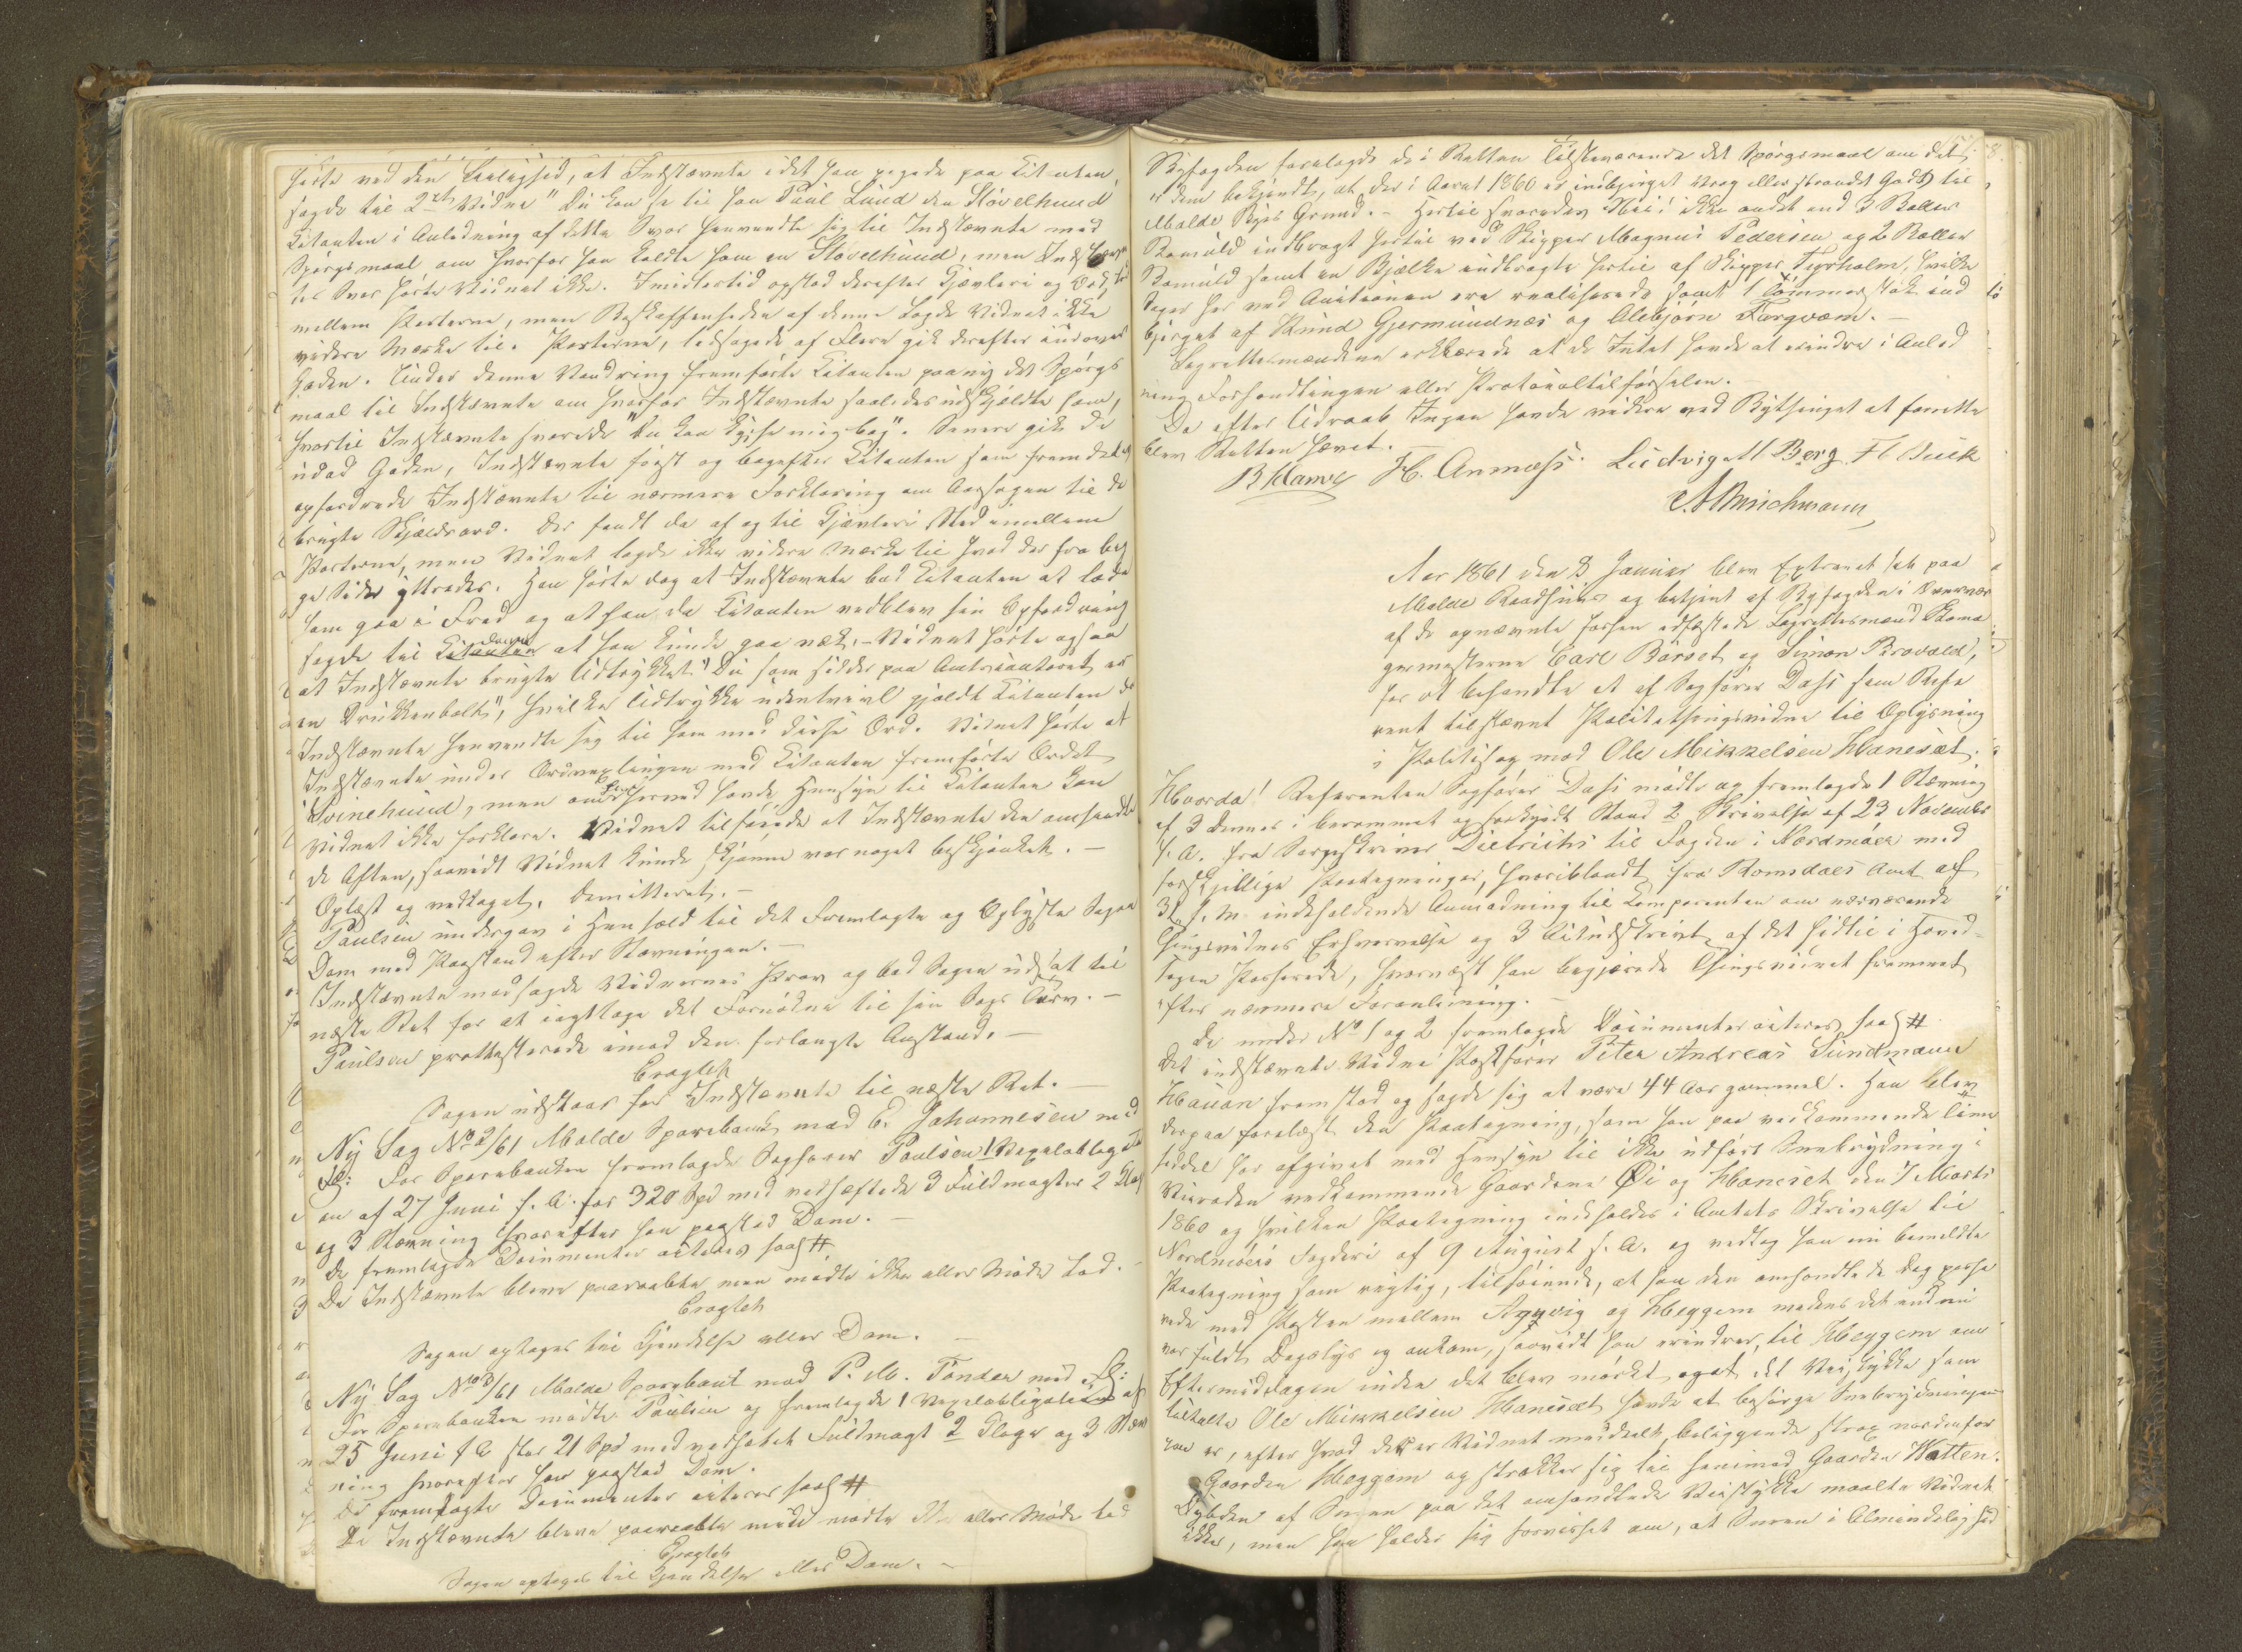 hørte ved den Leilighed, at Indstævnte idet han pegede paa Citanten,
sagde til 2det Vidne "Du kan se til han Paul Lund den Støvelhund
Citanten i Anledning af dette Svar henvendte sig til Indstævnte med
Spørgsmaal om hvorfor han kaldte ham en Støvelhund, men Indstævn
tes Svar hørte Vidnet ikke. Imidlertid opstod derefter Kjævleri og Ordstrid
mellem Parterne, men Beskaffenheden af denne lagde Vidnet ikke
videre Mærke til. Parterne, ledsagede af Flere gik derefter indover
Gaden. Under denne Vandring fremførte Citanten paany det Spørgs
maal til Indstævnte om hvorfor Indstævnte saaledes udskjældte ham,
hvortil Indstævnte svarede "Du kan kysse mig bag". Senere gik de
udad Gaden, Indstævnte først og bagefter Citanten som fremdeles
opfordrede Indstævnte til nærmere Forklaring om Aarsagen til de
brugte Skjældsord. Der fandt da af og til Kjævleri Sted imellem
Parterne, men Vidnet lagde ikke videre Mærke til hvad der fra beg
ge Sider yttredes. Han hørte dog at Indstævnte bad Citanten at lade
ham gaa i Fred og at han da Citanten vedblev sin Opfordring
sagde til Citanten at han kunde gaa væk. - Vidnet hørte ogsaa
at Indstævnte brugte Udtrykket "Du som sidder paa Amtscontoret er
en Drukkenbolt", hvilke Udtrykke udentvivl gjaldt Citanten da
Indstævnte henvendte sig til ham med disse Ord. Vidnet hørte at
Indstævnte under Ordvexlingen med Citanten fremførte Ordet
"Svinehund", men om han herved havde Hensyn til Citanten kan
Vidnet ikke forklare. Vidnet tilføiede at Indstævnte den omhandle
de Aften, saavidt Vidnet kunde skjønne var noget beskjænket. -
Oplæst og vedtaget. Demitteret. -
Paulsen indergav i Henhold til det Fremlagte og Oplyste Sagen
Dom med Paastand efter Stævningen. -
Indstævnte modsagde Vidnernes Prov og bad Sagen udsat til
næste Ret for at iagttage det Fornødne til sin Sags Tarv. -
Paulsen protesterede imod den forlangte Anstand. -
Eragtet
Sagen udstaar for Indstævnte til næste Ret. -
Ny Sag No 2/61 Molde Sparebank mod E. Johannesen med
Fl: For Sparebanken fremlagde Sagfører Paulsen 1 Vexelobligati
on af 27 Juni f. A. for 320 Spd med vedhæftede 3 Fuldmagter 2 Klage
og 3 Stævning hvorefter han paastod Dom. -
De fremlagde Documenter acteres saal #
De Indstævnte bleve paaraabte men mødte ikke eller Møde lod. -
Eragtet
Sagen optages til Kjendelse eller Dom. -
Ny Sag No 3/61 Molde Sparebank mod P. M. Tønder med Fl:
For Sparebanken mødte Paulsen og fremlagde 1 Vexelobligation af
25 Juni f A stor 21 Spd med vedhæftet Fuldmagt 2 Klage og 3 Stæv
ning hvorefter han paastod Dom.
De fremlagte Documenter acteres saal #
De Indstævnte bleve paaraabte men mødte ikke eller Møde lod
Eragtet
Sagen optages til Kjendelse eller Dom. -
Byfogden forelagde de i Retten Tilstedeværende det Spørgsmaal om det
er dem bekjendt, at der i Aaret 1860 er indbjerget Vrag eller strandet Gods til
Molde Byes Grund. - Hertil svaredes Nei! ikke andet end 3 Baller
Bomuld indbragt hertil ved Skipper Magnus Pedersen og 2 Baller
Bomuld samt en Bjælke indbragte hertil af Skipper Fyrholm, hvilke
Sager her ved Auctionen ere realiserede samt 1 Tømmerstok ind
bjerget af Knud Gjermundnæs og Olebjørn Fargvæm. -
Lagrettesmændene erklærede at de Intet havde at erindre i Anled
ning Forhandlingen eller Protocoltilførselen.
Da efter Udraab Ingen havde videre ved Bythinget at forrette
blev Retten hævet. -
H. Anmess. Ludvig M Berg
Aar 1861 den 8 Januar blev Extraret sat paa
Molde Raadhuus og betjent af Byfogden i Overvær
af de opnævnte forhen edfæstede Lagrettesmænd Skoma
germesterne Carl Børset og Simon Brovold,
for at behandle et af Sagfører Dass som Refe
rent tilstævnt Politithingsvidne til Oplysning
i Politisag mod Ole Mikkelsen Hanesæt.
Hvorda! Referenten Sagfører Dass mødte og fremlagde 1 Stævning
af 3 dennes i berammet og forkyndt Stand 2 Skrivelse af 23 November
f. A. fra Sorenskriver Dietrichs til Fogden i Nordmøer med
forskjellige Paategninger, hvoriblandt fra Romsdals Amt af
3 f. M. indeholdende Anmodning til Comparenten om nærværende
Thingsvidnes Erhvervelse og 3 Udskrift af det hidtil i Hoved-
sagen Passerede, hvornæst han begjærede Thingsvidnet fremmet
efter nærmere Foranledning. -
De under No 1 og 2 fremlagde Documenter acteres saal #
Det indstævnte Vidne Postfører Peter Andreas Sundmann
Hauan fremstod og sagde sig at være 44 Aar gammel. Han blev
derpaa forelæst den Paategning, som han paa vedkommende Time
seddel har afgivet med Hensyn til ikke udført Snebrydning i
Veiroden vedkommende Gaardene Øi og Hanesæt den 7 Marts
1860 og hvilken Paategning indholdes i Amtets Skrivelse til
Nordmøers Fogderi af 9 August f. A. og vedtog han nu bemeldte
Paategning som rigtig, tilføiende, at han den omhandlede Dag passe
rede med Posten mellem Angvig og Heggem medens det endnu
var fuldt Dagslys og ankom, saavidt han erindrer, til Heggem om
Eftermiddagen inden det blev mørkt, og at det Veistykke som
tiltalte Ole Mikkelsen Hanesæt havde at besørge Snebrydningen
paa er, efter hvad der er Vidnet meddelt, beliggende strax nordenfor
Gaarden Heggem og strækker sig til henimod Gaarden Watten.
Dybden af Sneen paa det omhandlede Veistykke maalte Vidnet
ikke, men han holder sig forvisset om, at Sneen i Almindelighed